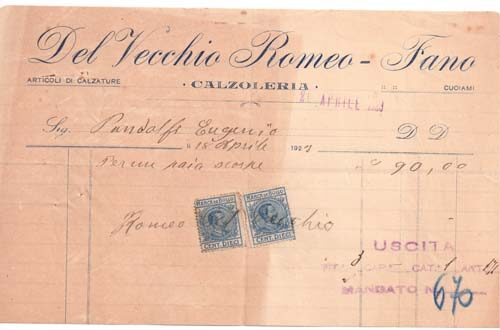 Del Vecchio Romeo - Fano
ARTICOLI DI CALZATURE · CALZOLERIA · :: :: CUOIAMI
APRILE
Sig. Pandolfi Eugenio D D
18 Aprile 192
Per un paio scarpe 90,00
MARCA DA BOLLO MARCA DA BOLLO
Romeo Del Vecchio
CENT. DIECI CENT. DIECI
USCITA
3 CAP. CAT. 1 ART. 12
MANDATO N. 670